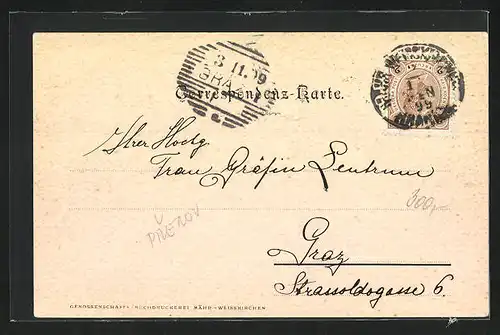 3 11 99
GRAZ
Correspondenz-Karte.
Ihrer Hochg
Frau Gräfin Zentrum
300,-
PŘEROV
Graz
Strassoldogasse 6.
GENOSSENSCHAFTS-BUCHDRUCKEREI MÄHR.-WEISSKIRCHEN